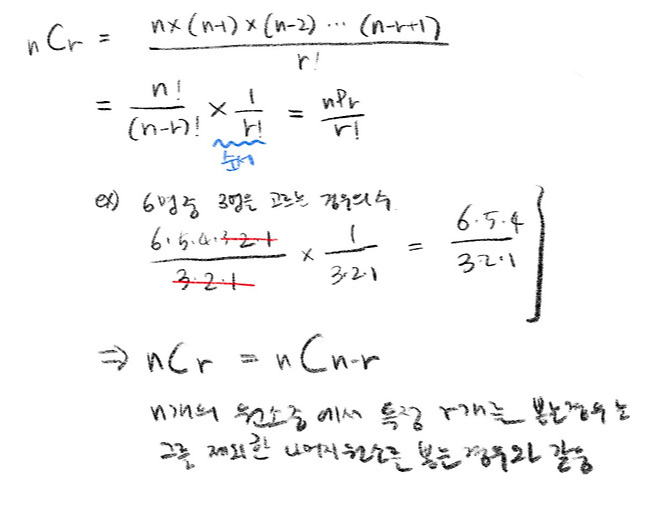 nCr = n×(n-1)×(n-2)⋯(n-r+1) / r!
= n! / (n-r)! × 1 / r! = nPr / r!
순서
ex) 6명중 3명을 고르는 경우의 수
6·5·4·3·2·1 / 3·2·1 × 1 / 3·2·1 = 6·5·4 / 3·2·1
⇒ nCr = nCn-r
n개의 원소중에서 특정 r개를 뽑는경우는
그를 제외한 나머지원소를 뽑는경우와 같음